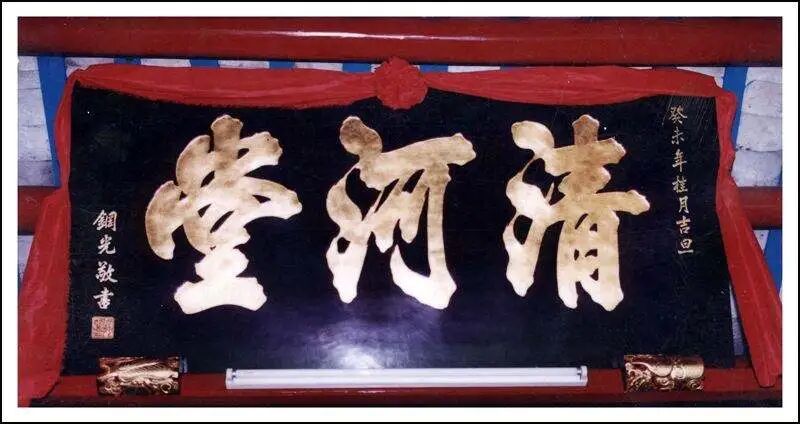 癸未年桂月吉旦
清河堂
鋼光敬書